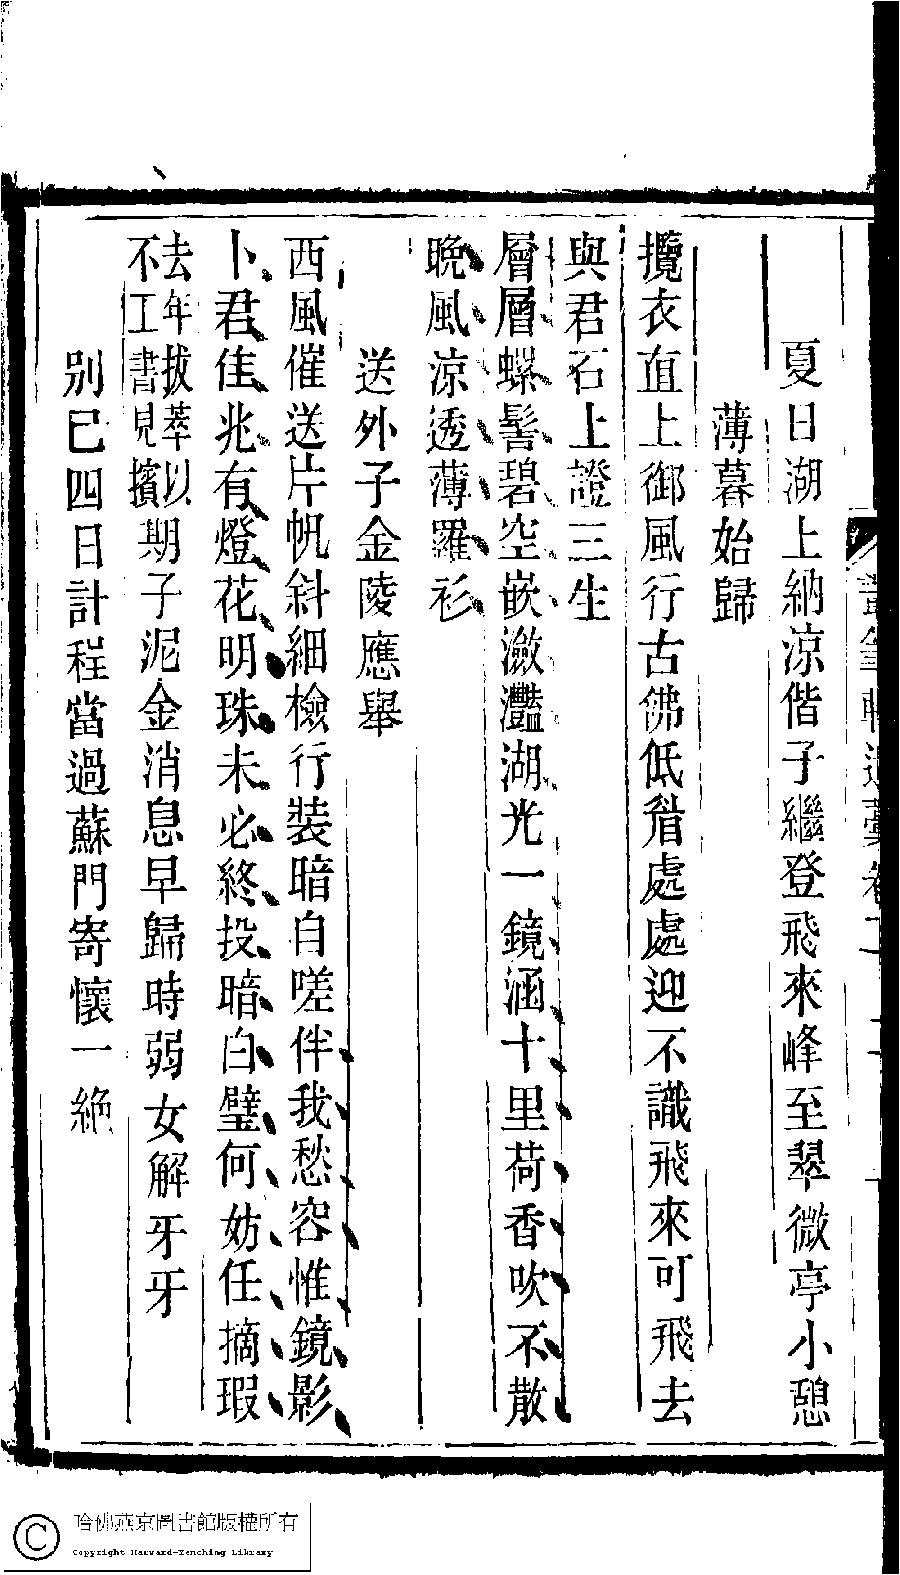 夏日湖上納涼偕子繼登飛來峰至翠微亭小憩
薄暮始歸
攬衣直上御風行古佛低眉處處迎不識飛來可飛去
與君石上證三生
層層螺髻碧空嵌瀲灩湖光一鏡涵十里荷香吹不散
晚風涼透薄羅衫
送外子金陵應舉
西風催送片帆斜細檢行裝暗自嗟伴我愁容惟鏡影
卜君佳兆有燈花明珠未必終投暗白璧何妨任摘瑕
去年拔萃以
不工書見擯
期子泥金消息早歸時弱女解牙牙
別已四日計程當過蘇門寄懷一絶
哈佛燕京圖書館版權所有
Copyright Harvard-Yenching Library